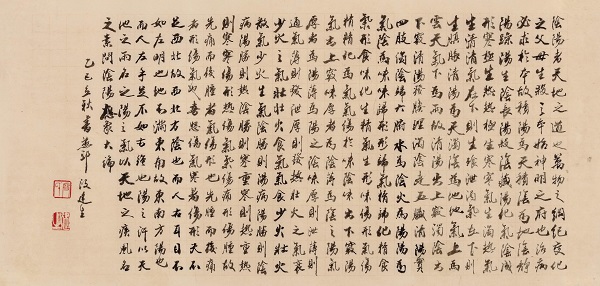 陰陽者天地之道也萬物之綱紀變化
之父母生殺之本始神明之府也治病
必求於本故積陽為天積陰為地陰靜
陽躁陽生陰長陽殺陰藏陽化氣陰成
形寒極生熱熱極生寒寒氣生濁熱氣
生清清氣在下則生飧泄濁氣在上則
生䐜脹清陽為天濁陰為地地氣上為
雲天氣下為雨故清陽出上竅濁陰出
下竅清陽發腠理濁陰走五藏清陽實
四肢濁陰歸六腑水為陰火為陽陽為
氣陰為味味歸形形歸氣氣歸精精歸化精食
氣形食味化生精氣生形味傷形氣傷
精精化為氣氣傷於味陰味出下竅陽
氣出上竅味厚者為陰薄為陰之陽氣
厚者為陽薄為陽之陰味厚則泄薄則
通氣薄則發泄厚則發熱壯火之氣衰
少火之氣壯壯火食氣氣食少火壯火
散氣少火生氣陰勝則陽病陽勝則陰
病陽勝則熱陰勝則寒重寒則熱重熱
則寒寒傷形熱傷氣氣傷痛形傷腫故
先痛而後腫者氣傷形也先腫而後痛
者形傷氣也喜怒傷氣寒暑傷形天不
足西北故西北方陰也而人右耳目不
如左明也地不滿東南故東南方陽也
而人左手足不如右強也陽之汗以天
地之雨名之陽之氣以天地之疾風名
之素問陰陽應象大論
乙巳立秋書